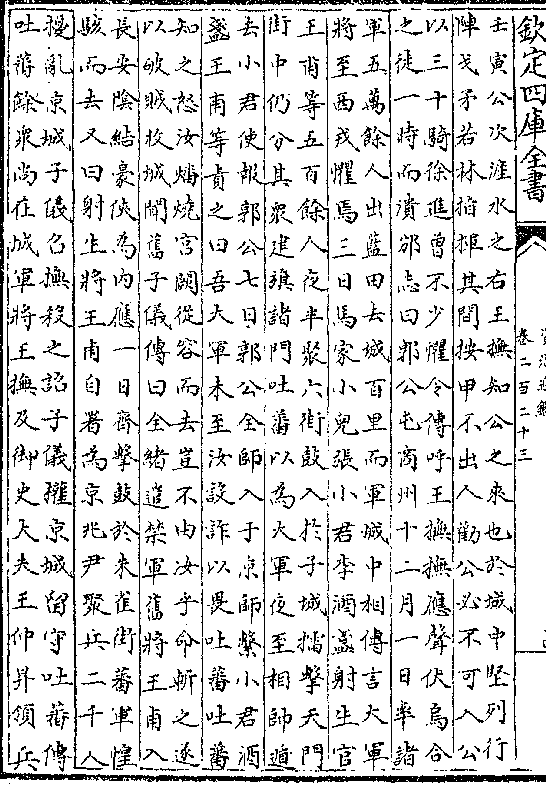 欽定四庫全書
卷二百二十三
壬寅公次滻水之右王撫知公之來也於城中堅列行
陣戈矛若林指揮其間按甲不出人勸公必不可入公
以三十騎徐進曾不少懼令傳呼王撫撫應聲伏烏合
之徒一時而潰邠志曰郭公屯商州十二月一日率諸
軍五萬餘人出藍田去城百里而軍城中相傳言大軍
將至西戎懼焉三日馬家小兒張小君李酒盞射生官
王甫等五百餘人夜半聚六街鼓入於子城擂擊天門
街中仍分其衆建旗諸門吐蕃以為大軍夜至相師遁
去小君使報郭公七日郭公全師入于京師縶小君酒
盞王甫等責之曰吾大軍未至汝設詐以畏吐蕃吐蕃
知之怒汝燔燒宮闕從容而去豈不由汝乎命斬之遂
以破賊收城聞舊子儀傳曰全緒遣禁軍舊將王甫入
長安陰結豪俠為内應一日齊擊鼓於朱雀街蕃軍惶
駭而去又曰射生將王甫自署為京兆尹聚兵二千人
擾亂京城子儀召撫殺之詔子儀權京城留守吐蕃傳
吐蕃餘衆尚在城軍將王撫及御史大夫王仲昇領兵